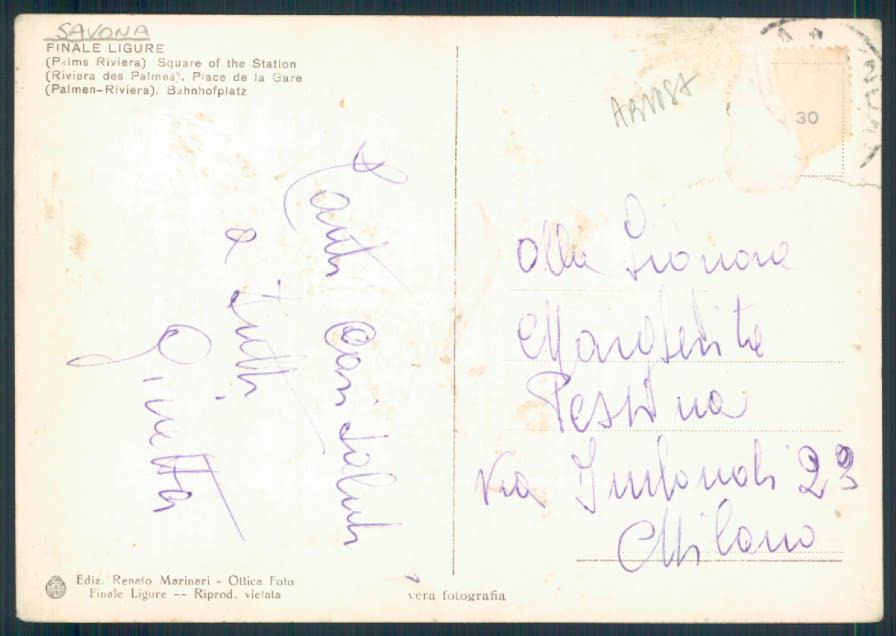 SAVONA
FINALE LIGURE
(Palms Riviera) Square of the Station
(Riviera des Palmes). Place de la Gare
(Palmen-Riviera). Bahnhofplatz
30
Tanti Cari Saluti
a tutti
Ginetta
Alla Signora
Margherita
Pestina
Via 23
Milano
Ediz. Renato Marinari - Ottica Foto
Finale Ligure -- Riprod. vietata
vera fotografia